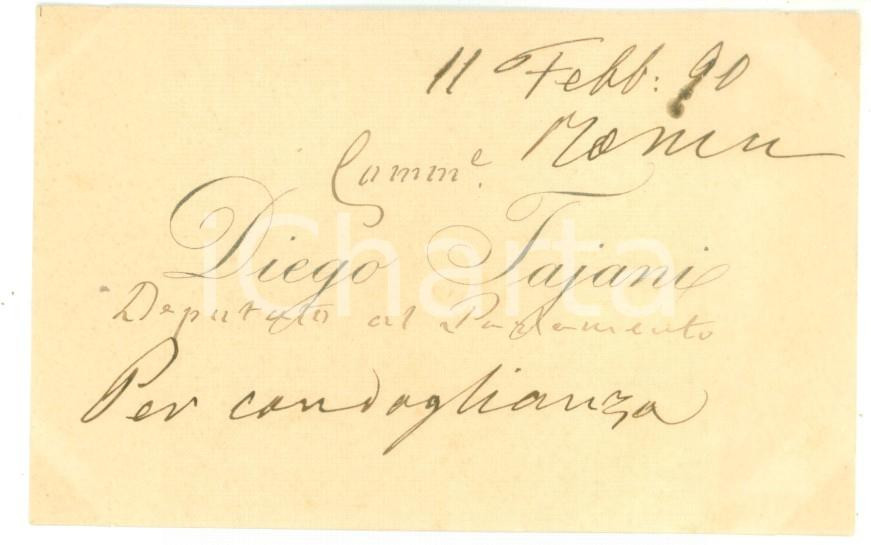 11 Febb: 90
Roma
Comm.e
Diego Tajani
Deputato al Parlamento
Per condoglianza
iCharta